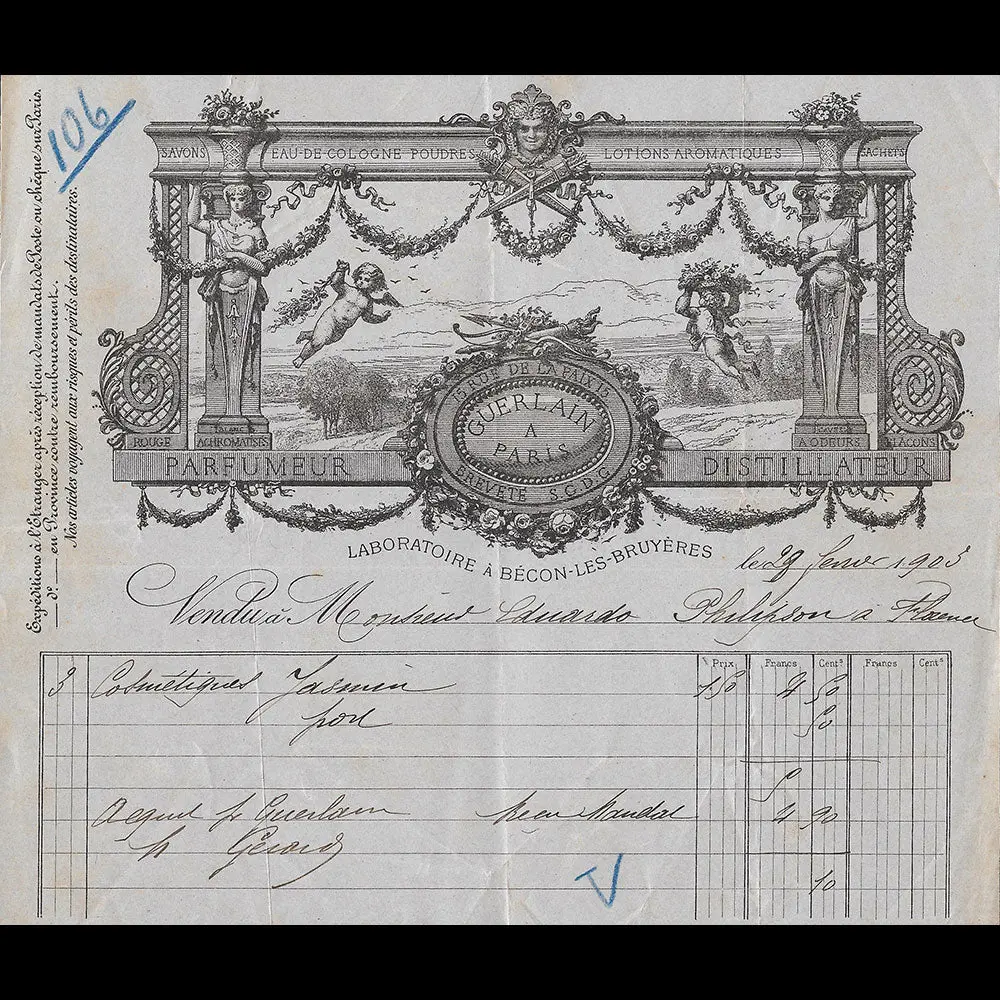 106
Expéditions à l'Étranger après réception de mandats de Poste ou chèque sur Paris.
d°. en Province contre remboursement.
Nos articles voyagent aux risques et périls des destinataires.
SAVONS EAU-DE-COLOGNE POUDRES LOTIONS AROMATIQUES SACHETS
ROUGE BLANC ACHROMATISÉS A ODEURS FLACONS
PARFUMEUR DISTILLATEUR
RUE DE LA PAIX
GUERLAIN
A
PARIS
BREVETÉ S.G.D.G.
LABORATOIRE À BÉCON-LES-BRUYÈRES
le 29 1903
Vendu à Monsieur Eduardo Philipson à Florence
Prix Francs Cent^s Francs Cent^s
3 Cosmétiques Jasmin 1.50 4 50
port 50
5
Acquit pr Guerlain Reçu Mandat 4 90
Gérard
10
V